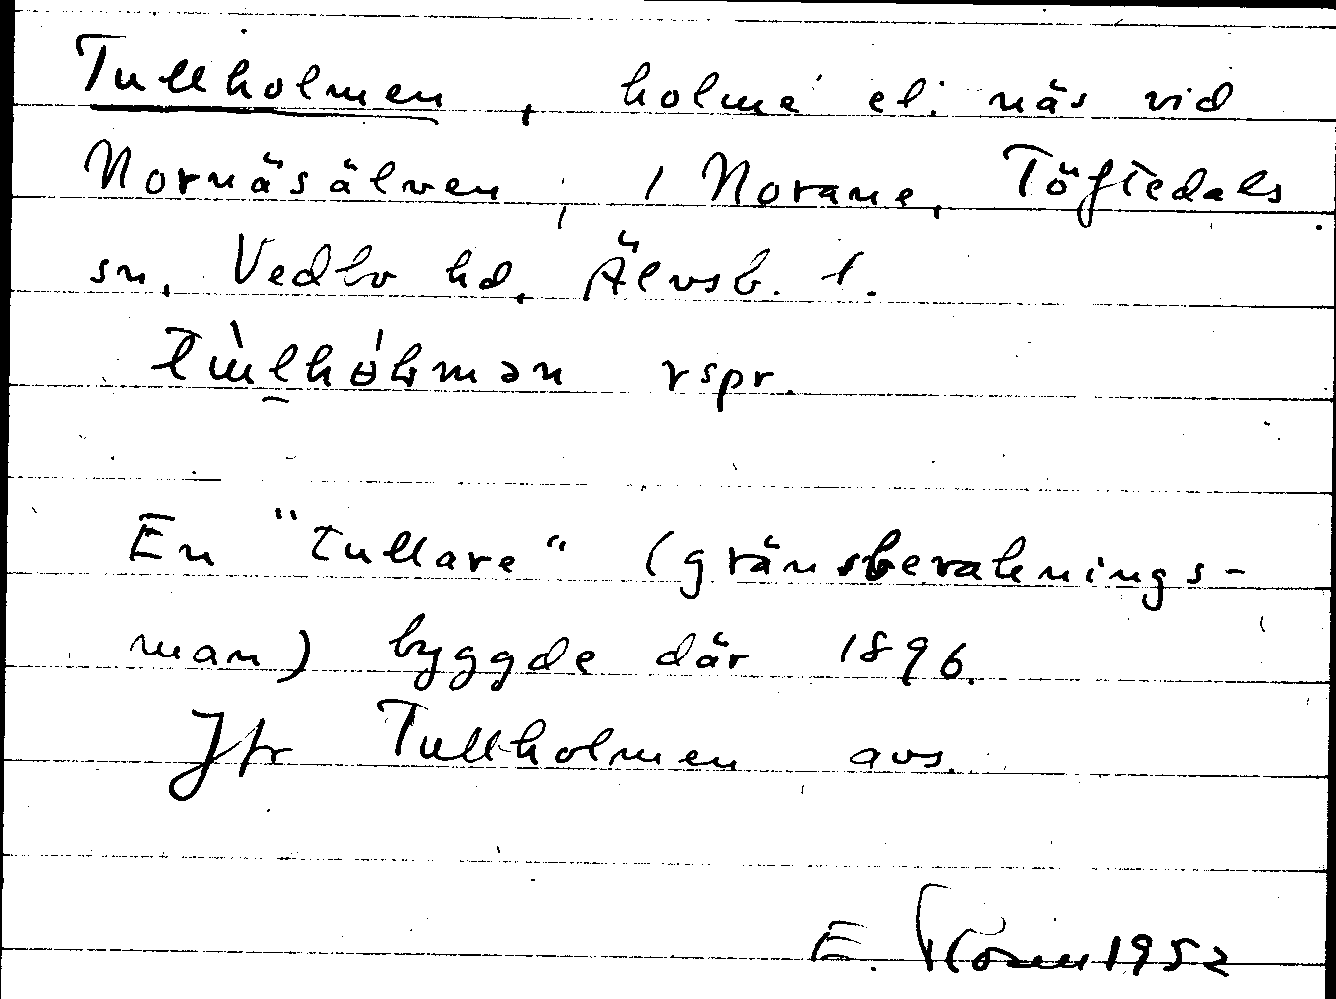 Tullholmen, holme el. näs vid
Nornäsälven, 1 Norane, Töftedals
sn, Vedbo hd, Älvsb. l.
rspr.
En "tullare" (gränsbevaknings-
man) byggde där 1896.
Jfr Tullholmen avs.
E. 1952